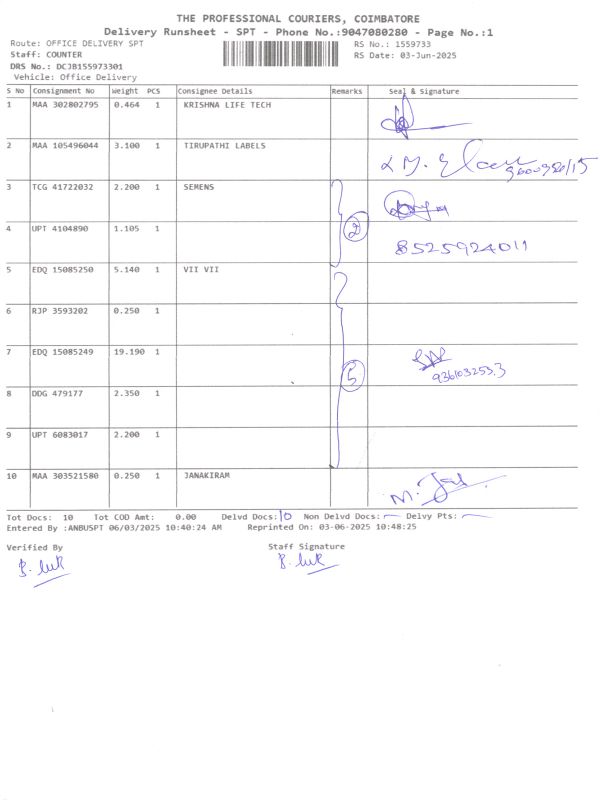 THE PROFESSIONAL COURIERS, COIMBATORE
Delivery Runsheet - SPT - Phone No.:9047080280 - Page No.:1
Route: OFFICE DELIVERY SPT RS No.: 1559733
Staff: COUNTER RS Date: 03-Jun-2025
DRS No.: DCJB155973301
Vehicle: Office Delivery
S No Consignment No Weight PCS Consignee Details Remarks Seal & Signature
1 MAA 302802795 0.464 1 KRISHNA LIFE TECH
2 MAA 105496044 3.100 1 TIRUPATHI LABELS
3 TCG 41722032 2.200 1 SEMENS
4 UPT 4104890 1.105 1 2 8525924011
5 EDQ 15085250 5.140 1 VII VII
6 RJP 3593202 0.250 1
7 EDQ 15085249 19.190 1 5 9361032533
8 DDG 479177 2.350 1
9 UPT 6083017 2.200 1
10 MAA 303521580 0.250 1 JANAKIRAM
Tot Docs: 10 Tot COD Amt: 0.00 Delvd Docs: 10 Non Delvd Docs: — Delvy Pts: —
Entered By :ANBUSPT 06/03/2025 10:40:24 AM Reprinted On: 03-06-2025 10:48:25
Verified By Staff Signature